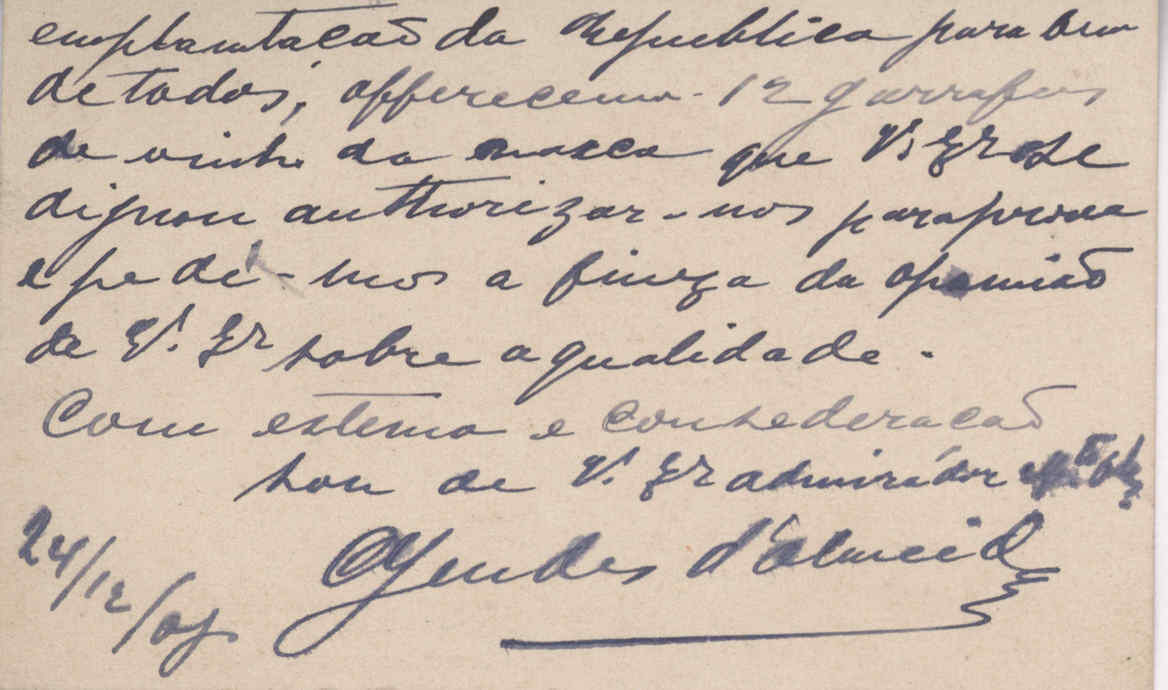 emplantação da Republica para bem
de todos, offerecemos 12 garrafas
de vinho da marca que V. Exª se
dignou authorizar-nos para prova
e pedi-mos a fineza da openião
de V. Exª sobre a qualidade.
Com estema e consederacão
sou de V. Exª admirádor
Mendes d'Almeida
24/12/07